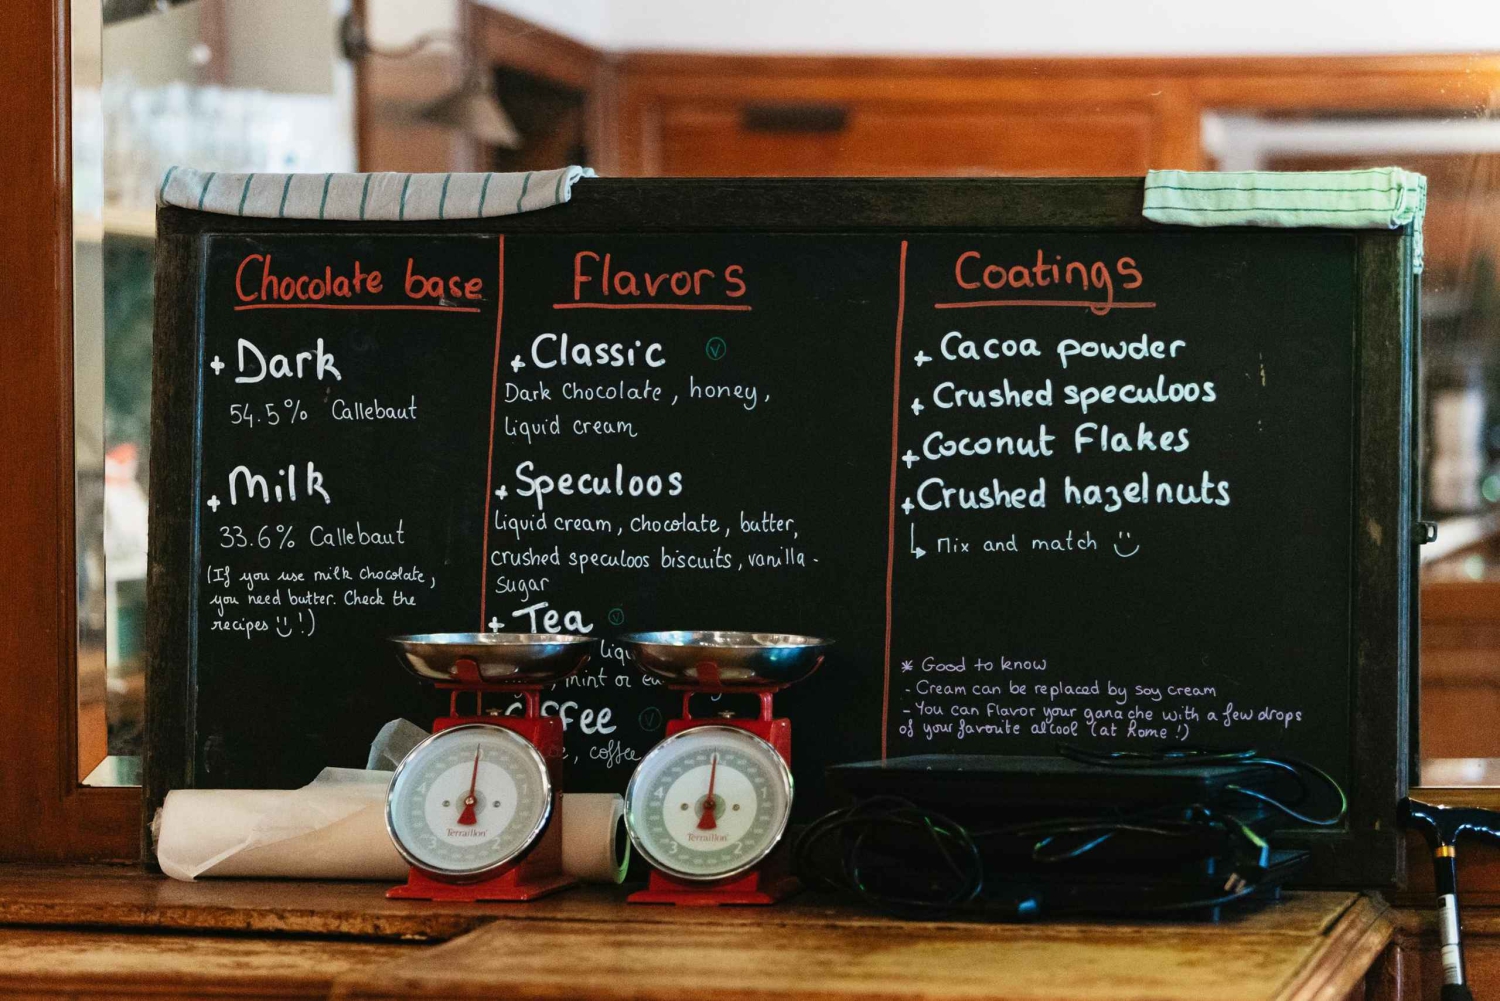 Chocolate base
+ Dark
54.5% Callebaut
+ Milk
33.6% Callebaut
(If you use milk chocolate,
you need butter. Check the
recipes !)
Flavors
+ Classic V
Dark Chocolate, honey,
liquid cream
+ Speculoos
liquid cream, chocolate, butter,
crushed speculoos biscuits, vanilla-
sugar
+ Tea V
, mint or
ffee V
, coffee
Coatings
+ Cacoa powder
+ Crushed speculoos
+ Coconut Flakes
+ Crushed hazelnuts
Mix and match
* Good to know
- Cream can be replaced by soy cream
- You can flavor your ganache with a few drops
of your favorite alcool (at home !)
Terraillon
3 2
Terraillon
3 2